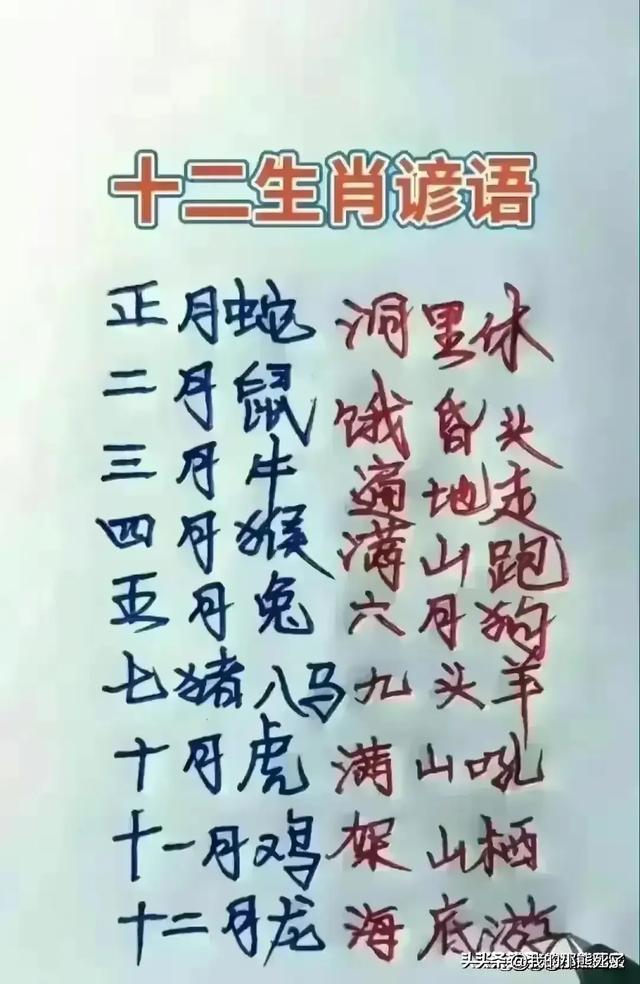 十二生肖谚语
正月蛇 洞里休
二月鼠 饿昏头
三月牛 遍地走
四月猴 满山跑
五月兔 六月狗
七猪八马九头羊
十月虎 满山吼
十一月鸡 架山栖
十二月龙 海底游
头条@我的那熊死了